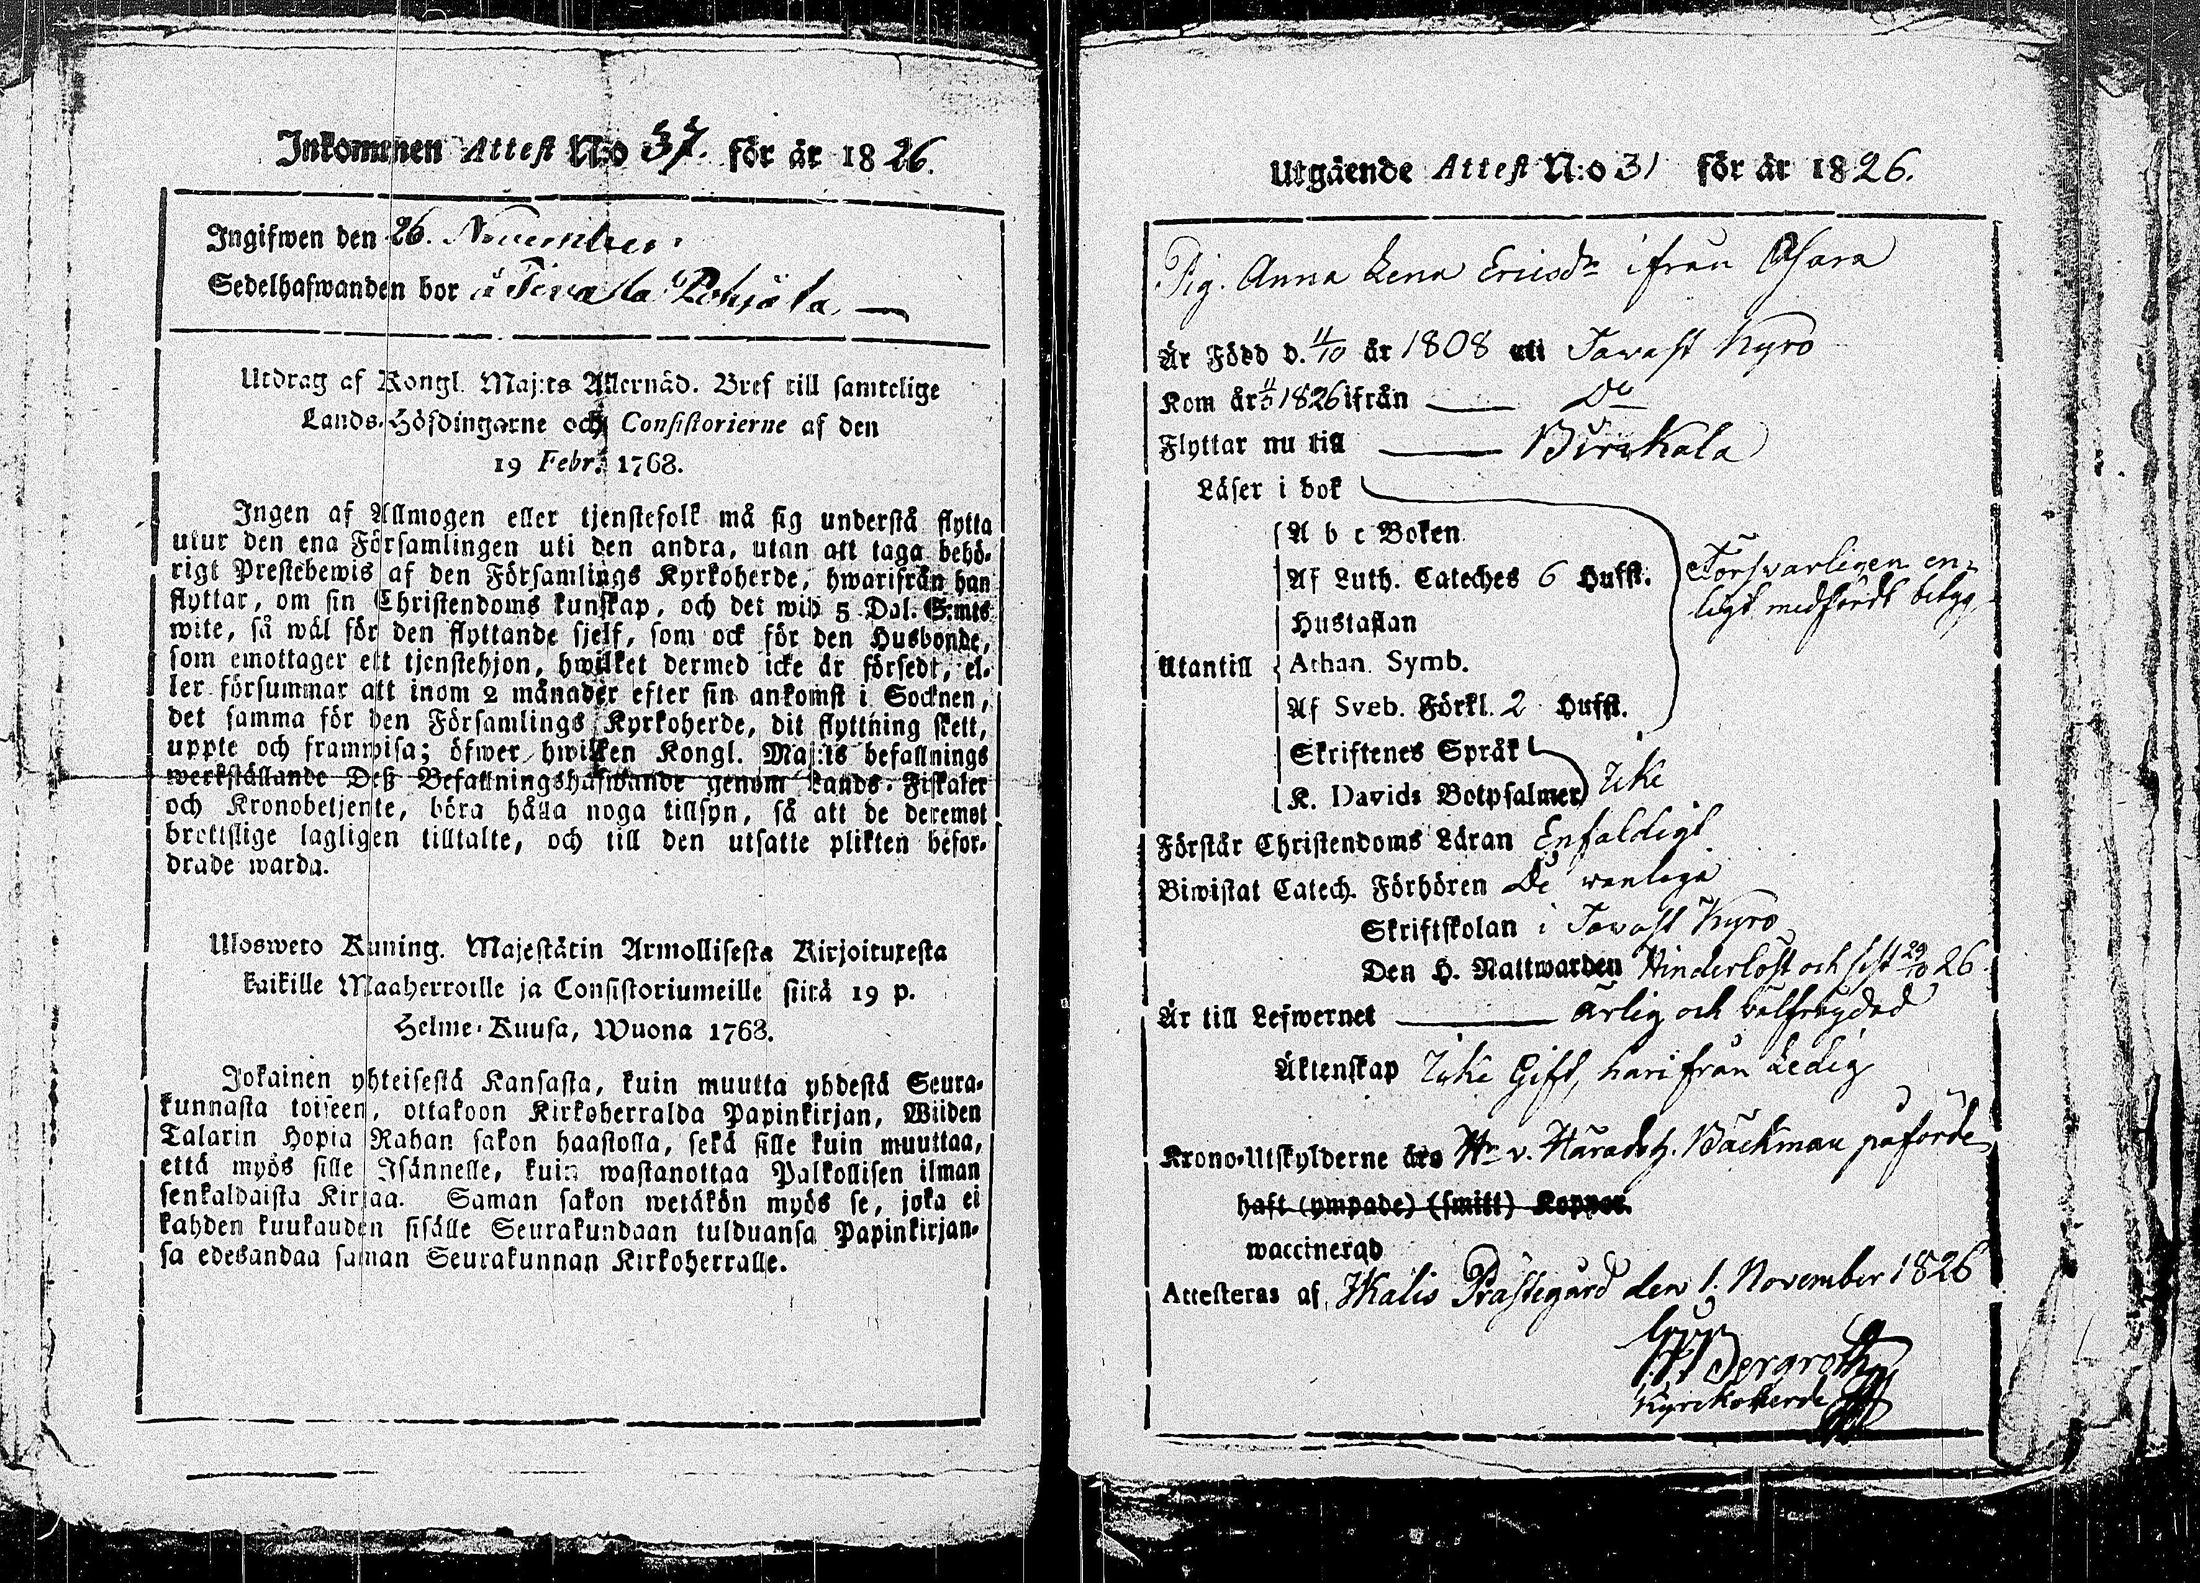 Inkommen Attest N:o 37. för år 1826.
Ingifwen den 26. November.
Sedelhafwanden bor å Pohjola
Utdrag af Kongl. Maj:ts Allernåd. Bref till samtelige
Lands-Höfdingarne och Consistorierne af den
19 Febr. 1768.
Ingen af Allmogen eller tjenstefolk må sig understå flytta
utur den ena Församlingen uti den andra, utan att taga behö-
rigt Prestebewis af den Församlings Kyrkoherde, hwarifrån han
flyttar, om sin Christendoms kunskap, och det wid 5 Dal. S:mts
wite, så wäl för den flyttande sjelf, som ock för den Husbonde,
som emottager ett tjenstehjon, hwilket dermed icke är försedt, el-
ler försummar att inom 2 månader efter sin ankomst i Socknen,
det samma för den Församlings Kyrkoherde, dit flyttning skett,
uppte och framwisa; öfwer hwilken Kongl. Maj:ts befallnings
werkställande Deß Befallningshafwande genom Lands-Fiskaler
och Kronobetjente, böra hålla noga tillsyn, så att de deremot
brottslige lagligen tilltalte, och till den utsatte plikten befor-
drade warda.
Ulosweto Kuning. Majestätin Armollisesta Kirjoituxesta
kaikille Maaherroille ja Consistoriumeille siitä 19 p.
Helme-Kuusa, Wuona 1768.
Jokainen yhteisestä Kansasta, kuin muutta yhdestä Seura-
kunnasta toiseen, ottakoon Kirkoherralda Papinkirjan, Wiiden
Talarin Hopia Rahan sakon haastolla, sekä sille kuin muuttaa,
että myös sille Isännelle, kuin wastanottaa Palkollisen ilman
senkaldaista Kirjaa. Saman sakon wetäkön myös se, joka ei
kahden kuukauden sisälle Seurakundaan tulduansa Papinkirjan-
sa edesandaa saman Seurakunnan Kirkoherralle.
Utgående Attest N:o 31 för år 1826.
Pig. Anna Lena Ericsdr ifrån Osara
Är Född d. 11/10 år 1808 uti Tawast Kyro
Kom år 1826 ifrån Do
Flyttar nu till Birckala
Läser i bok
A b c Boken
Af Luth. Cateches 6 Hufst.
Försvarligen en-
ligt medfördt betyg
Hustaflan
Utantill Athan. Symb.
Af Sveb. Förkl. 2 Hufst.
Skriftenes Språk
Icke
K. Davids Botpsalmer
Förstår Christendoms Läran Enfaldigt
Biwistat Catech. Förhören De wanliga
Skriftskolan i Tawast Kyro
Den H. Nattwarden Hinderlöst och sist 29/10 26
Är till Lefwernet ärlig och wälfrägdad
Äktenskap Icke Gift, härifrån Ledig
Krono-Utskylderne äro Hr v. Häradsh. Bäckman påförde
haft (ympade) (smitt) Koppor.
waccinerad
Attesteras af Ikalis Prästegård den 1. November 1826
Bergroth
Kyrckoherde